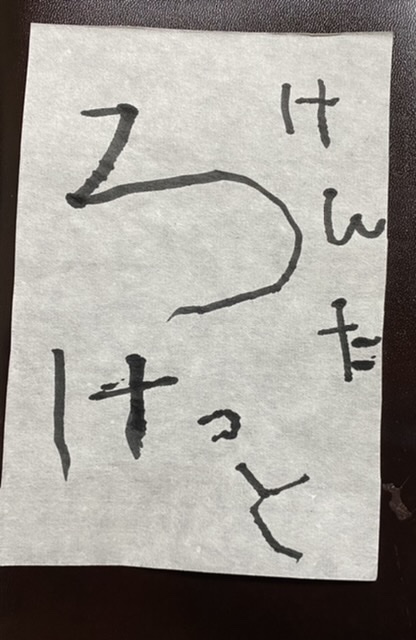 けんた
ろ
けっと